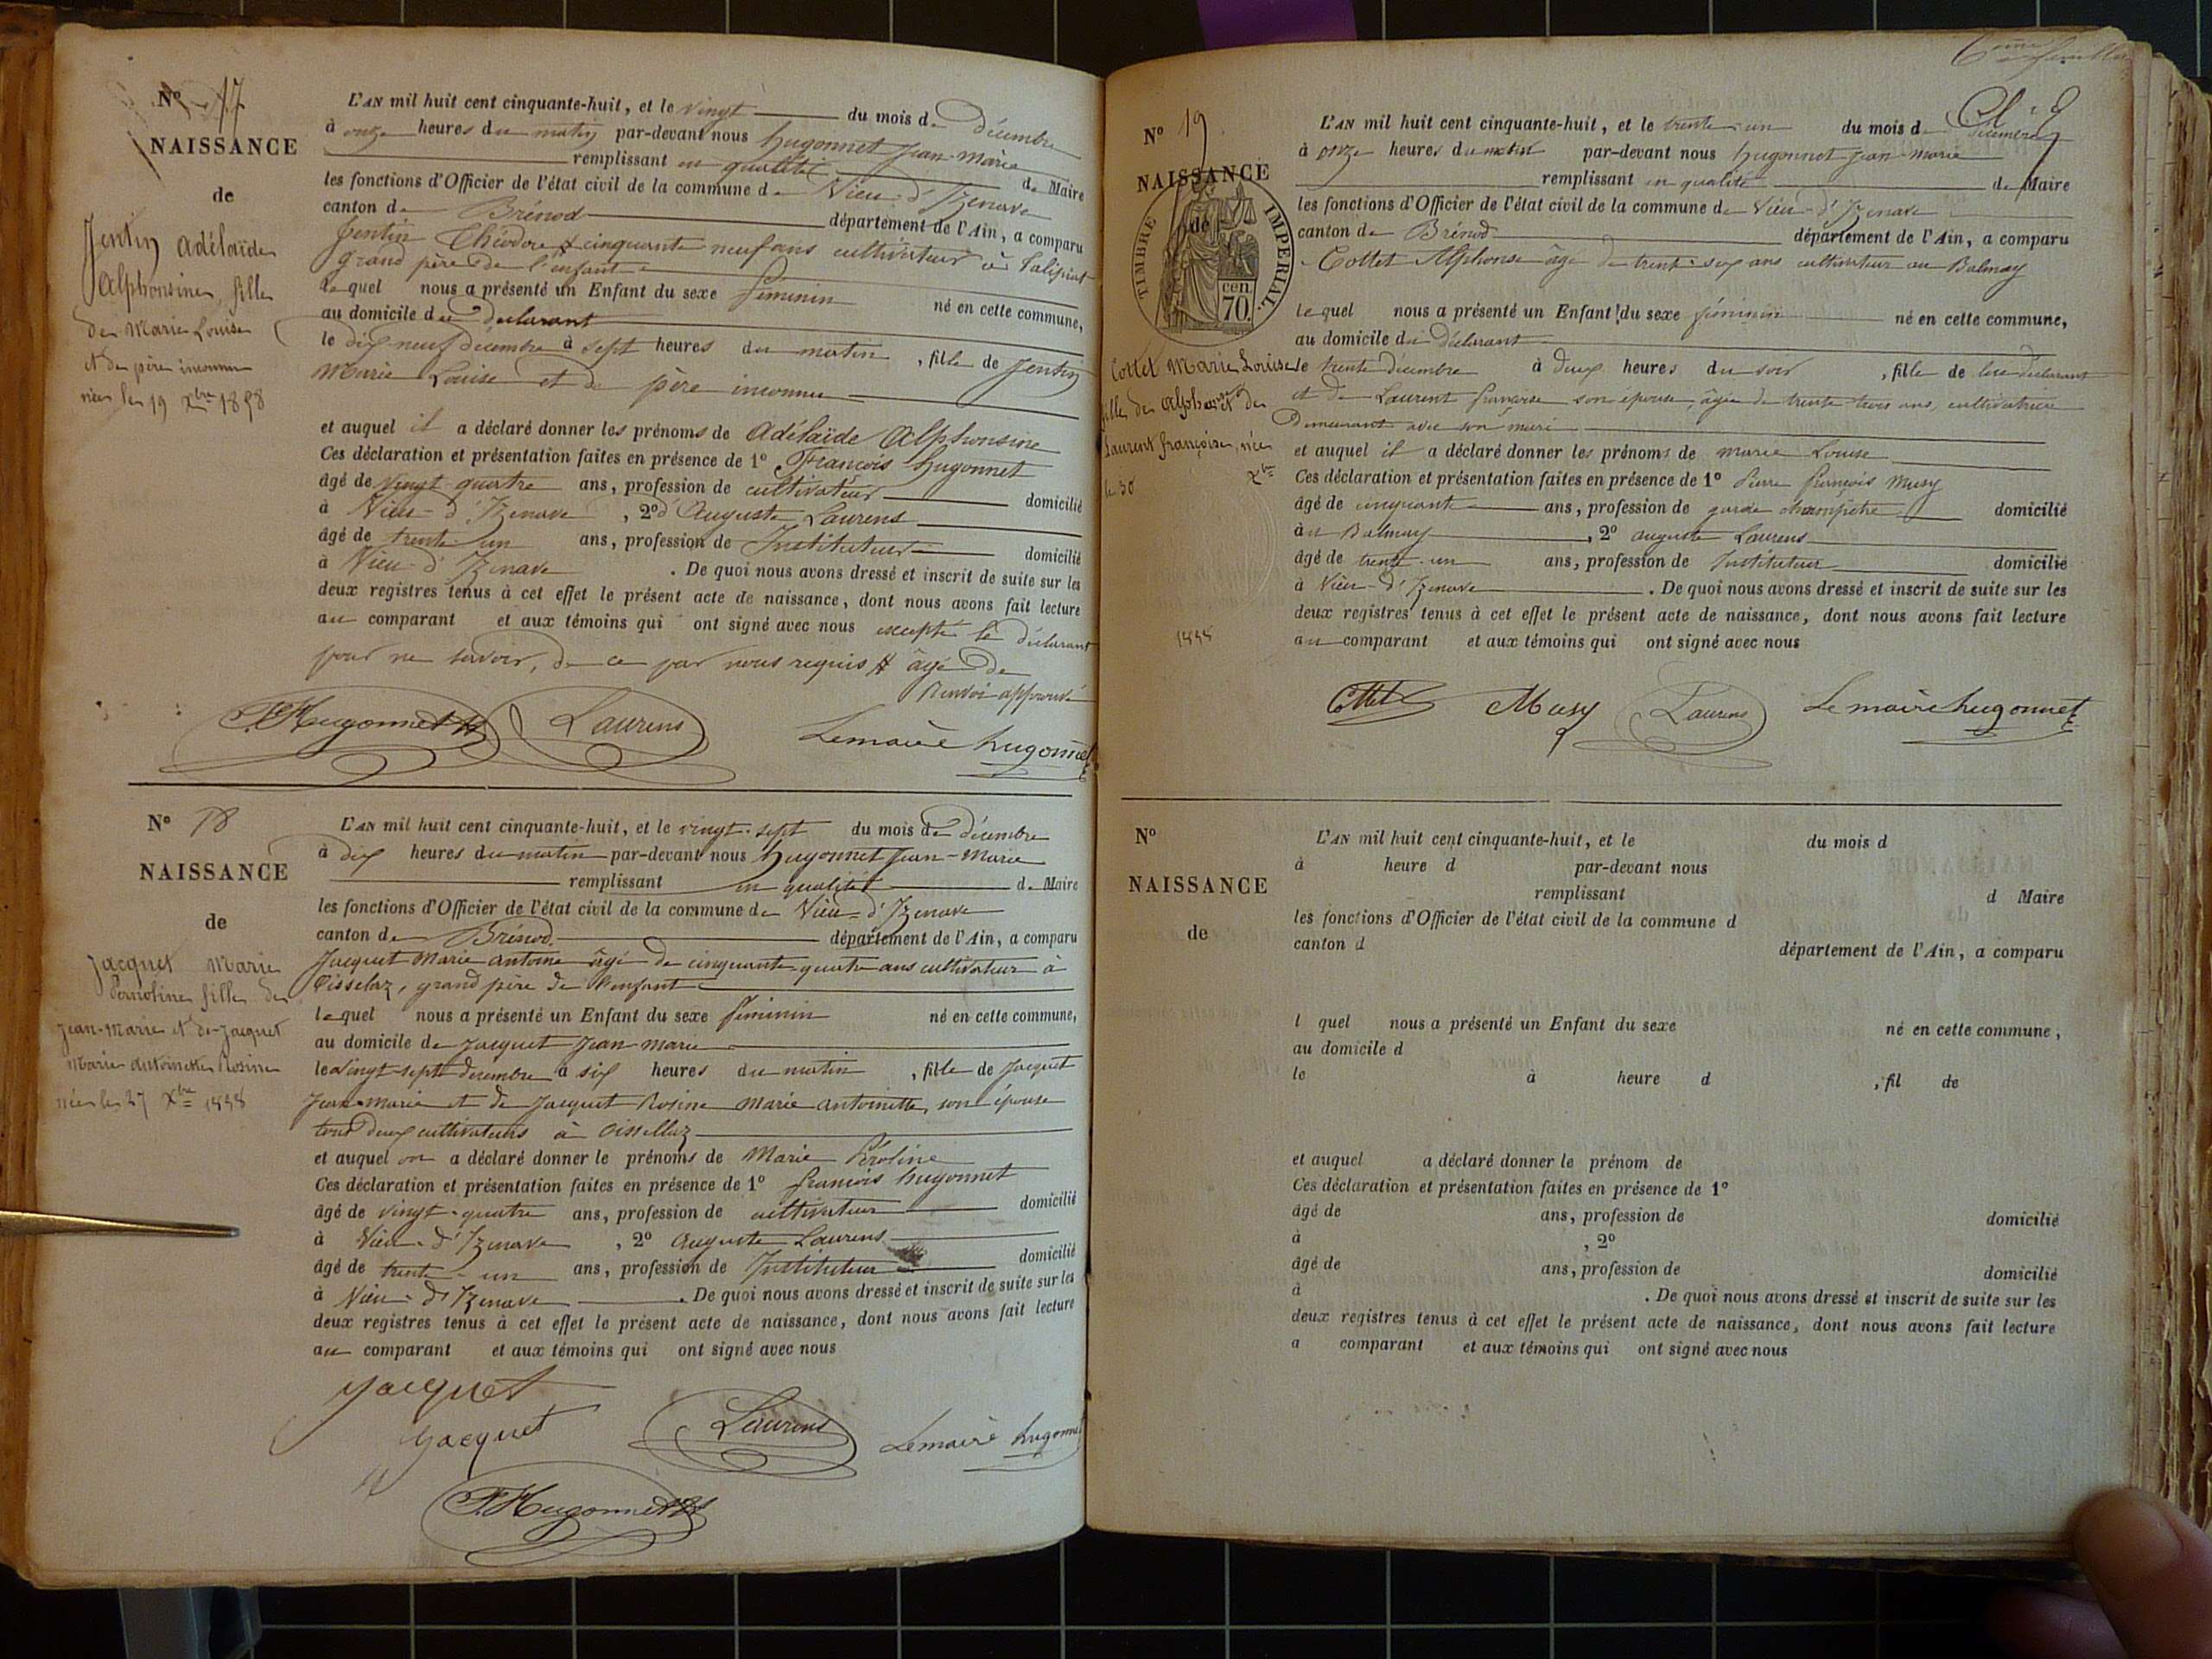 N° 17
NAISSANCE
de
Jentin Adélaïde
Alphonsine, fille
de Marie Louise
et de père inconnu
née le 19 Xbre 1858
L'AN mil huit cent cinquante-huit, et le vingt du mois de décembre
à onze heures du matin par-devant nous hugonnet Jean-Marie
remplissant en qualité de Maire
les fonctions d'Officier de l'état civil de la commune de Vieu-d'Izenave
canton de Brénod département de l'Ain, a comparu
Jentin Théodore cinquante neuf ans cultivateur à
grand père de l'enfant
lequel nous a présenté un Enfant du sexe féminin né en cette commune,
au domicile du déclarant
le dix-neuf décembre à sept heures du matin, fille de Jentin
Marie Louise et de père inconnu
et auquel il a déclaré donner les prénoms de Adélaïde Alphonsine
Ces déclaration et présentation faites en présence de 1° François hugonnet
âgé de vingt-quatre ans, profession de cultivateur domicilié
à Vieu-d'Izenave, 2° Auguste Laurens
âgé de trente-un ans, profession de Instituteur domicilié
à Vieu-d'Izenave. De quoi nous avons dressé et inscrit de suite sur les
deux registres tenus à cet effet le présent acte de naissance, dont nous avons fait lecture
au comparant et aux témoins qui ont signé avec nous excepté le déclarant
pour ne savoir, de ce par nous requis # âgé de
Renvoi approuvé
F. Hugonnet Laurens Le maire hugonnet
N° 18
NAISSANCE
de
Jacquet Marie
fille de
Jean-Marie et de Jacquet
Marie Antoinette Rosine
née le 27 Xbre 1858
L'AN mil huit cent cinquante-huit, et le vingt-sept du mois de décembre
à dix heures du matin par-devant nous hugonnet Jean-Marie
remplissant en qualité de Maire
les fonctions d'Officier de l'état civil de la commune de Vieu-d'Izenave
canton de Brénod département de l'Ain, a comparu
Jacquet Marie Antoine âgé de cinquante-quatre ans cultivateur à
grand père de l'enfant
lequel nous a présenté un Enfant du sexe féminin né en cette commune,
au domicile de Jacquet Jean-Marie
le vingt-sept décembre à six heures du matin, fille de Jacquet
Jean-Marie et de Jacquet Rosine Marie Antoinette, son épouse
tous deux cultivateurs à
et auquel on a déclaré donner le prénoms de Marie
Ces déclaration et présentation faites en présence de 1° françois hugonnet
âgé de vingt-quatre ans, profession de cultivateur domicilié
à Vieu-d'Izenave, 2° Auguste Laurens
âgé de trente-un ans, profession de Instituteur domicilié
à Vieu-d'Izenave. De quoi nous avons dressé et inscrit de suite sur les
deux registres tenus à cet effet le présent acte de naissance, dont nous avons fait lecture
au comparant et aux témoins qui ont signé avec nous
Jacquet
Jacquet Laurens Le maire hugonnet
F. Hugonnet
6ème feuillet
N° 19
NAISSANCE
de
TIMBRE IMPÉRIAL
70 cen.
Cottet Marie Louise
fille de Alphonse et de
Laurent françoise, née
le 30 Xbre
1858
L'AN mil huit cent cinquante-huit, et le trente-un du mois de décembre
à onze heures du matin par-devant nous hugonnet Jean-Marie
remplissant en qualité de Maire
les fonctions d'Officier de l'état civil de la commune de Vieu-d'Izenave
canton de Brénod département de l'Ain, a comparu
Cottet Alphonse âgé de trente-six ans cultivateur au Balmay
lequel nous a présenté un Enfant du sexe féminin né en cette commune,
au domicile du déclarant
le trente décembre à deux heures du soir, fille de lui déclarant
et de Laurent françoise son épouse, âgée de trente-trois ans, cultivatrice
Demeurant avec son mari
et auquel il a déclaré donner les prénoms de marie Louise
Ces déclaration et présentation faites en présence de 1° Pierre françois Musy
âgé de cinquante ans, profession de garde champêtre domicilié
au Balmay, 2° auguste Laurens
âgé de trente-un ans, profession de Instituteur domicilié
à Vieu-d'Izenave. De quoi nous avons dressé et inscrit de suite sur les
deux registres tenus à cet effet le présent acte de naissance, dont nous avons fait lecture
au comparant et aux témoins qui ont signé avec nous
Cottet Musy Laurens Le maire hugonnet
N°
NAISSANCE
de
L'AN mil huit cent cinquante-huit, et le du mois d
à heure d par-devant nous
remplissant d Maire
les fonctions d'Officier de l'état civil de la commune d
canton d département de l'Ain, a comparu
l quel nous a présenté un Enfant du sexe né en cette commune,
au domicile d
le à heure d , fil de
et auquel a déclaré donner le prénom de
Ces déclaration et présentation faites en présence de 1°
âgé de ans, profession de domicilié
à , 2°
âgé de ans, profession de domicilié
à . De quoi nous avons dressé et inscrit de suite sur les
deux registres tenus à cet effet le présent acte de naissance, dont nous avons fait lecture
a comparant et aux témoins qui ont signé avec nous